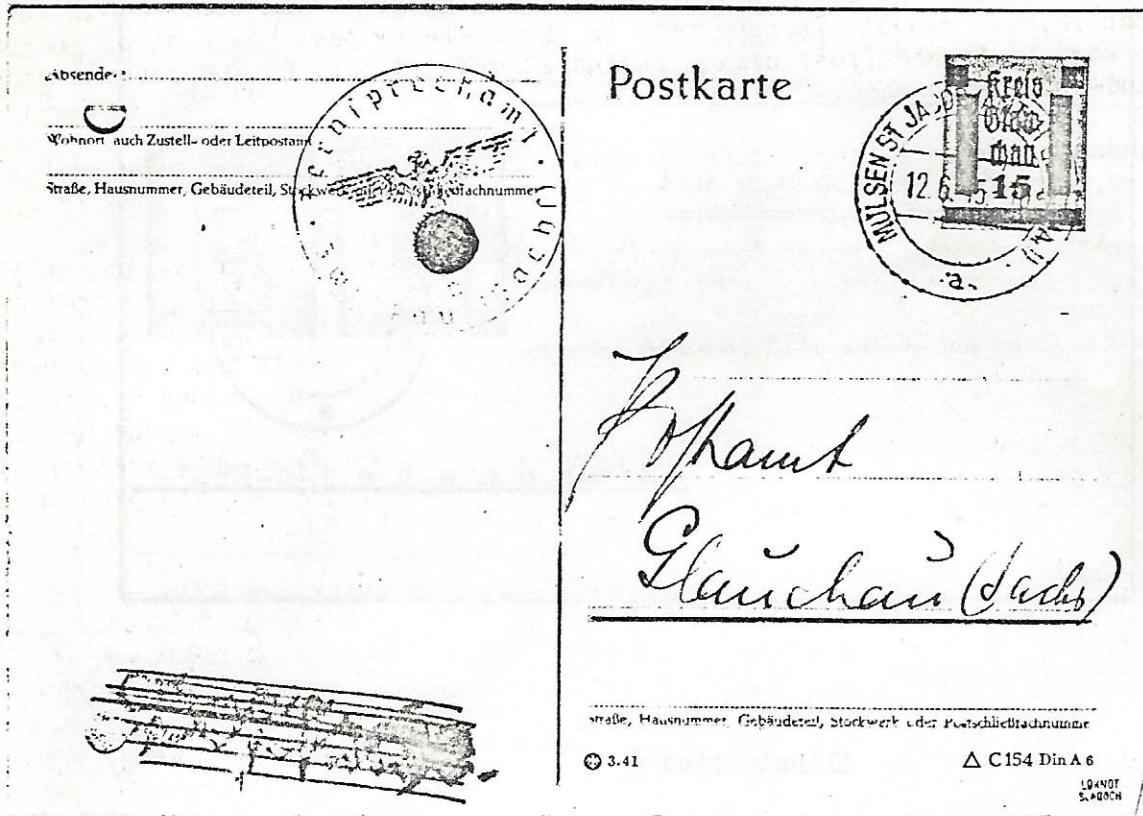 Absender:
Wohnort, auch Zustell- oder Leitpostamt
Straße, Hausnummer, Gebäudeteil, Stockwerk
Fernsprechamt
Postkarte
Kreis
Glau-
chau
15
MÜLSEN ST JA
12.6. 5
a
Postamt
Glauchau (Sachs)
Straße, Hausnummer, Gebäudeteil, Stockwerk oder Postschließfachnummer
3.41
C 154 Din A 6